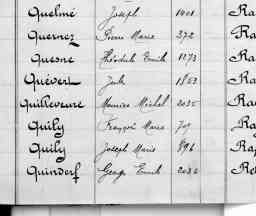 Quelmé Joseph 1401 Ra
Quernez Pierre Marie 372 Ra
Quesne Théodule Emile 1273 Ra
Quévert Jules 1853 Ra
Quilleveure Maurice Michel 2035 Ra
Quily François Marie 707 Ra
Quily Joseph Marie 896 Ra
Quindorf George Emile 2032 Re